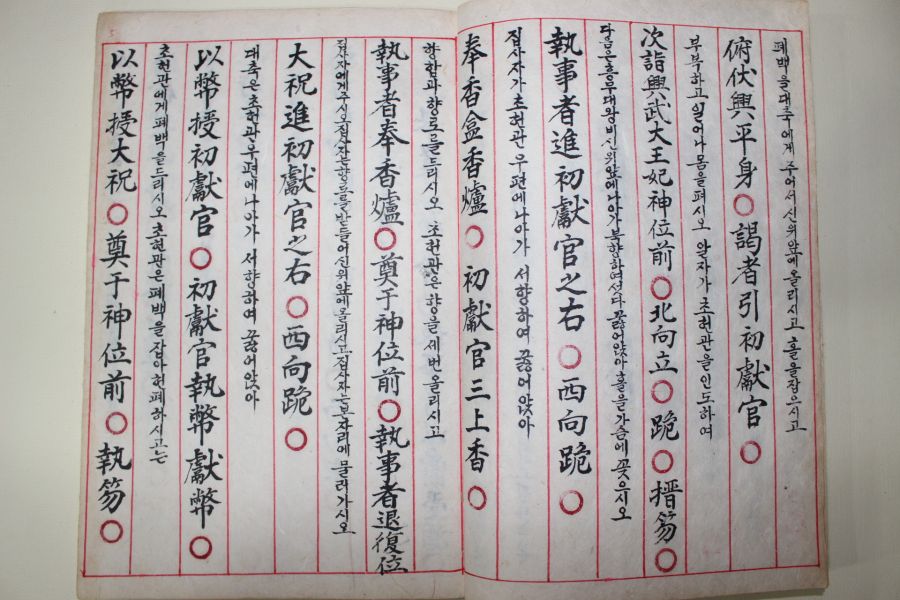 폐백을대축에게 주어서신위앞에올리시고 홀을잡으시고
俯伏興平身○謁者引初獻官○
부복하고일어나몸을펴시오 알자가 초헌관을인도하여
次詣興武大王妃神位前○北向立○跪○搢笏○
다음은흥무대왕비신위앞에나아가북향하여섯다꿇어앉아홀을가슴에꽂으시오
執事者進初獻官之右○西向跪○
집사자가초헌관 우편에나아가 서향하여 꿇어앉아
奉香盒香爐○初獻官三上香○
향합과향로를드리시오 초헌관은향을세번올리시고
執事者奉香爐○奠于神位前○執事者退復位
집사자에게주시오집사자는향로를받들어신위앞에올리시고집사자는본자리에물러가시오
大祝進初獻官之右○西向跪○
대축은초헌관우편에나아가 서향하여 꿇어앉아
以幣授初獻官○初獻官執幣獻幣○
초헌관에게폐백을드리시오 초헌관은폐백을잡아헌폐하시고는
以幣授大祝○奠于神位前○執笏○